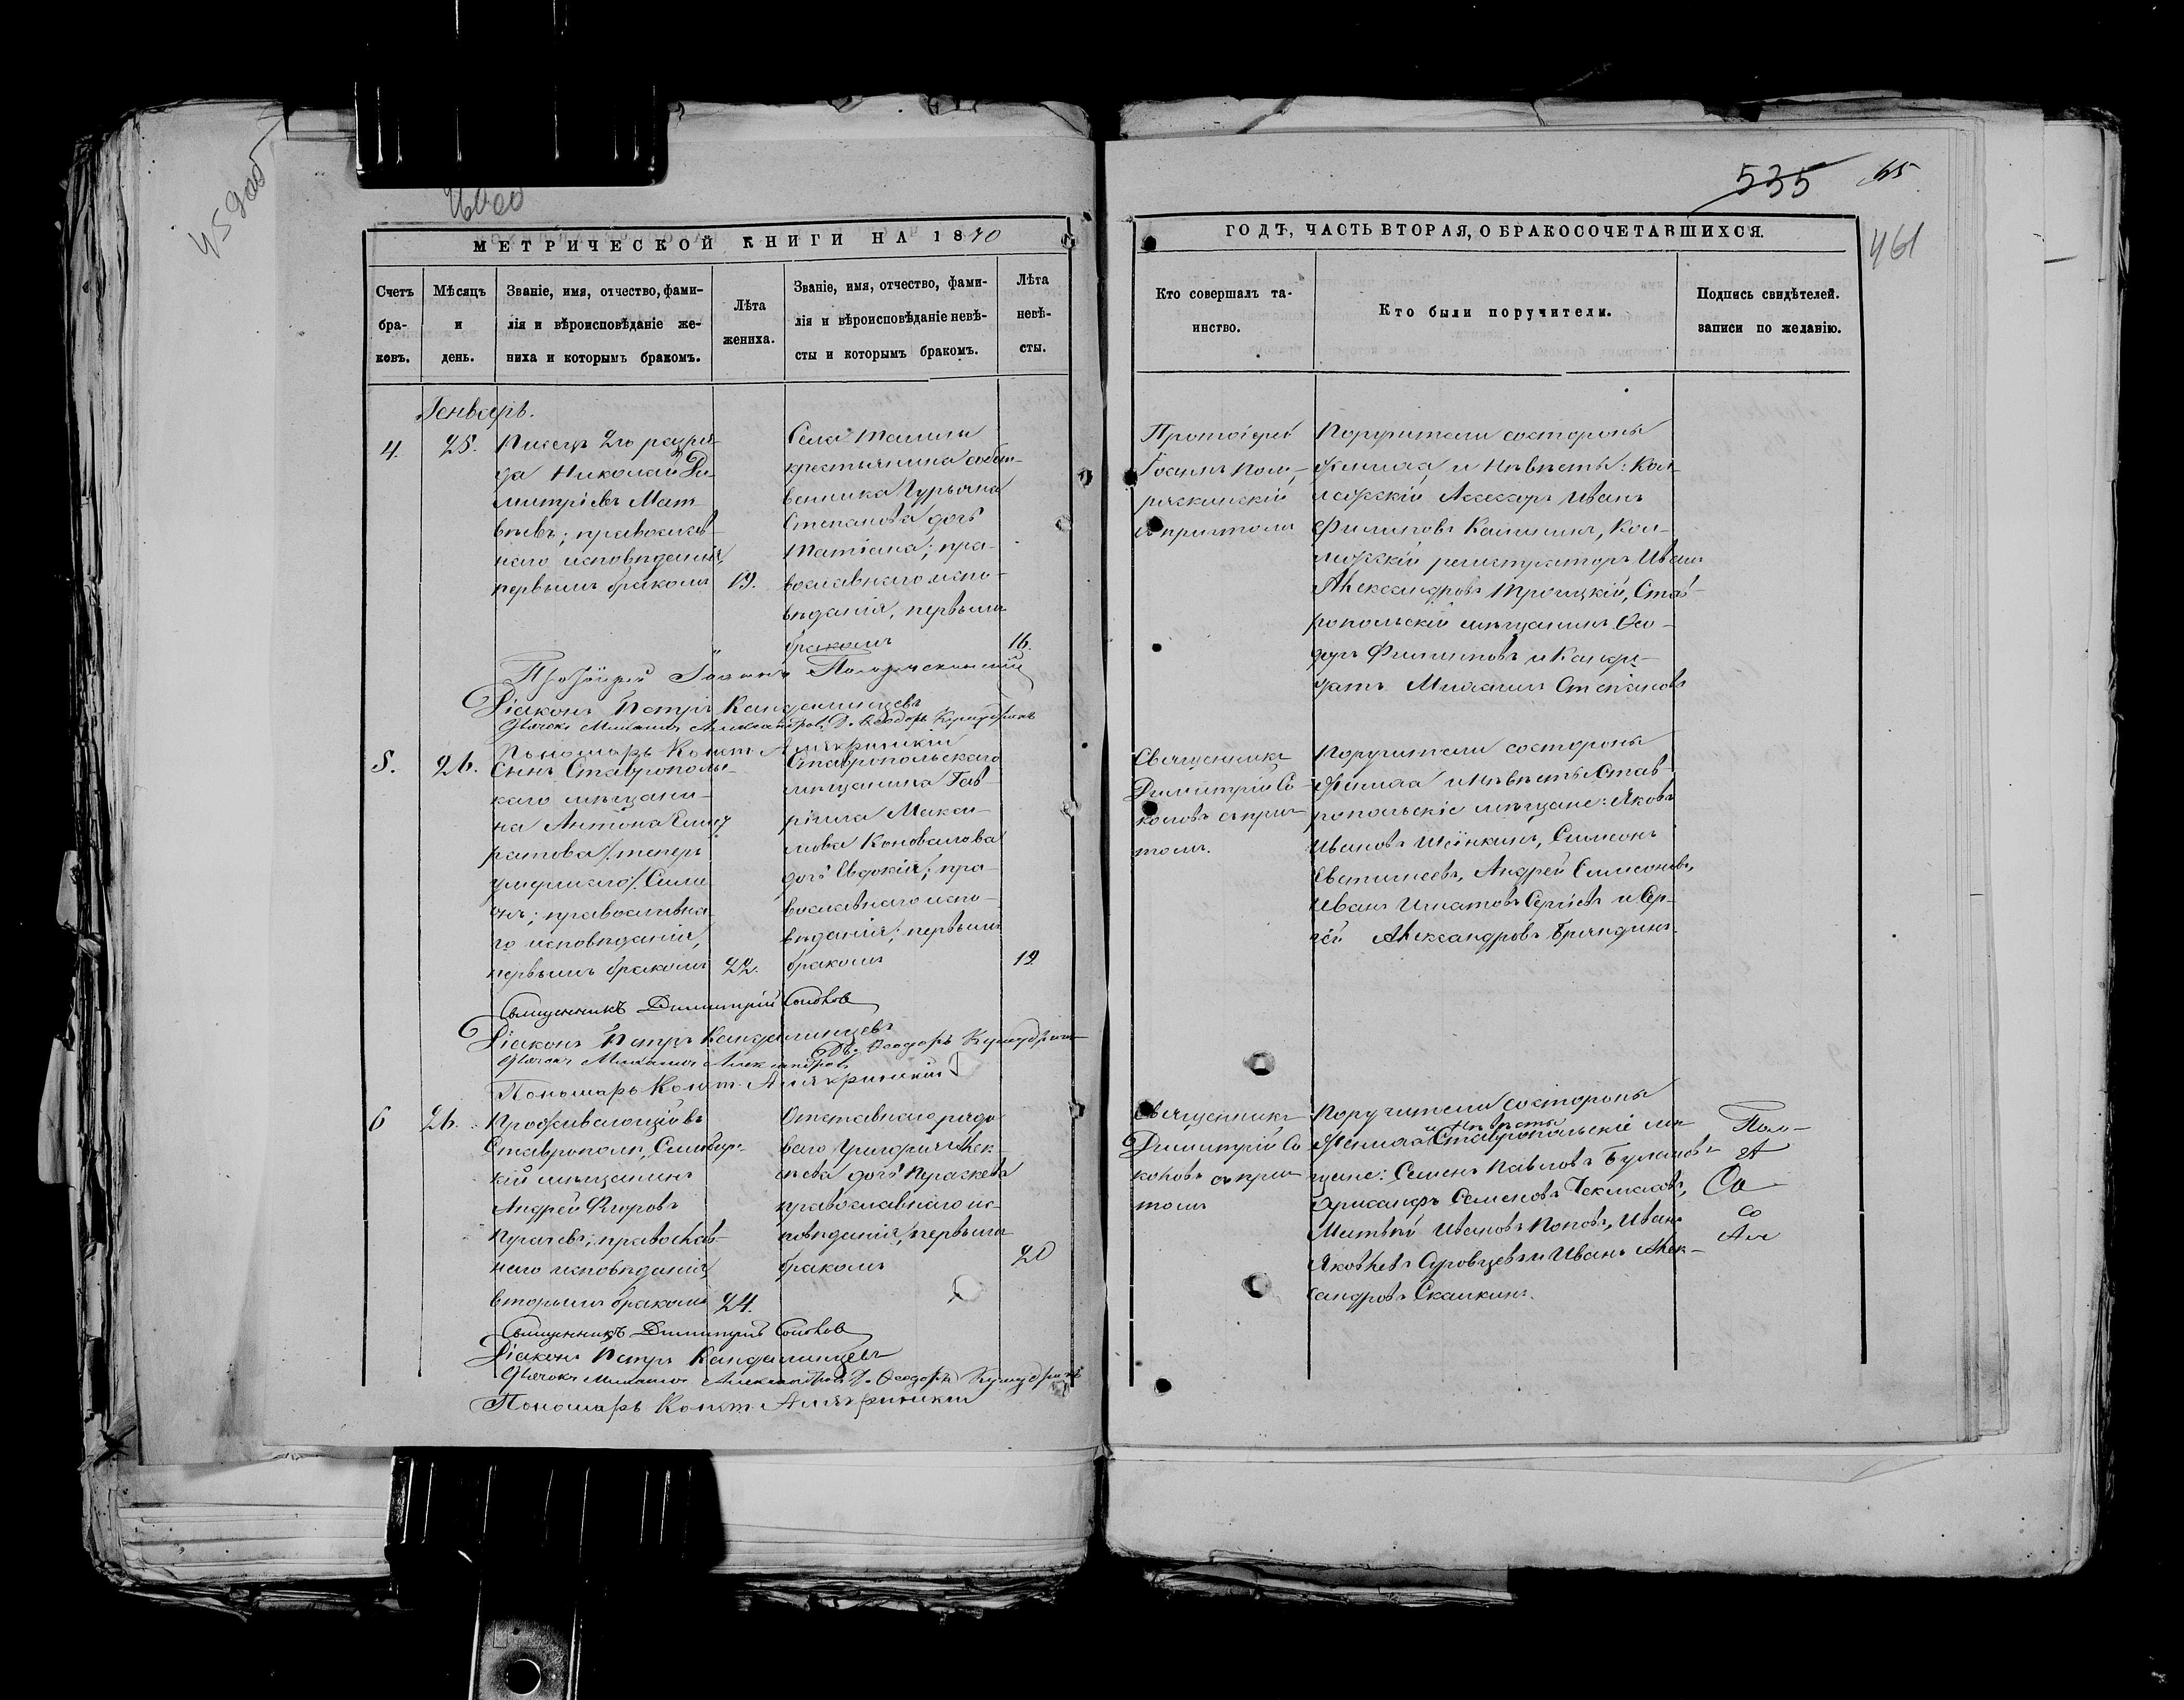 535 65
461
МЕТРИЧЕСКОЙ КНИГИ НА 1870
Счетъ бра-ковъ.
Мѣсяцъ и день.
Званіе, имя, отчество, фами-
лія и вѣроисповѣданіе же-
ниха и которымъ бракомъ.
Лѣта жениха.
Званіе, имя, отчество, фами-
лія и вѣроисповѣданіе невѣ-
сты и которымъ бракомъ.
Лѣта невѣ-сты.
Генварь.
4.
25.
Писецъ 2го разря-
да Николай Ди-
митріевъ Мат
вѣевъ; православ
наго исповѣданія,
первымъ бракомъ
19.
Села
крестьянина собст-
венника Гурьяна
Степанова дочь
Татіана; пра-
вославнаго испо-
вѣданія, первымъ
бракомъ
16.
Протоіерей Іоаннъ
Діаконъ Петръ Кандалинцевъ
Дьячокъ Михаилъ Александровъ Д. Ѳеодоръ
Пономарь Конст.
5.
26.
Сынъ Ставрополь-
скаго мѣщани-
на Антона
ратова /теперь
умершаго/ Симе
онъ; православна-
го исповѣданія,
первымъ бракомъ
22.
Ставропольскаго
мѣщанина Гав-
ріила Макси-
мова Коновалова
дочь Евдокія; пра-
вославнаго испо-
вѣданія; первымъ
бракомъ
19.
Священникъ Димитрій Соколов
Діаконъ Петръ Кандалинцевъ
Дьячокъ Михаилъ Александровъ Дь. Ѳеодоръ
Пономарь Конст.
6
26.
Проживающій въ
Ставрополѣ, Симбирс-
кій мѣщанинъ
Андрей Егоровъ
православ-
наго исповѣданія,
вторымъ бракомъ
24.
Отставнаго рядо
ваго Григорія Алек-
сѣева дочь Параскева
православнаго ис-
повѣданія, первымъ
бракомъ
20
Священникъ Димитрій Соколов
Діаконъ Петръ Кандалинцевъ
Дьячокъ Михаилъ Александров Д. Ѳеодоръ
Пономарь Конст.
ГОДЪ, ЧАСТЬ ВТОРАЯ, О БРАКОСОЧЕТАВШИХСЯ.
Кто совершалъ та-
инство.
Кто были поручители.
Подпись свидѣтелей.
записи по желанію.
Протоіерей
Іоаннъ
съ причтомъ
Поручители со стороны
жениха и невѣсты: Кол-
лежскій Ассесоръ Иванъ
Филиповъ Калининъ, Кол-
лежскій регистраторъ Иванъ
Александровъ Троицкій, Став-
ропольскій мѣщанинъ Ѳео-
доръ Филиповъ и
Михаилъ Степановъ
Священникъ
Димитрій Со
коловъ съ прич
томъ.
Поручители со стороны
жениха и невѣсты Став-
ропольскіе мѣщане: Яковъ
Ивановъ Симеонъ
Андрей Симеоновъ,
Иванъ Игнатовъ Сергѣевъ и Сер-
гѣй Александровъ Бряндинъ.
Священникъ
Димитрій Со
коловъ съ прич
томъ
Поручители со стороны
и невѣсты
жениха Ставропольскіе мѣ
щане: Семенъ Павловъ Булановъ
Семеновъ Чекмасовъ,
Матвѣй Ивановъ Поповъ, Иванъ
Яковлевъ Суровцевъ и Иванъ Алек-
сандровъ Скалкинъ.